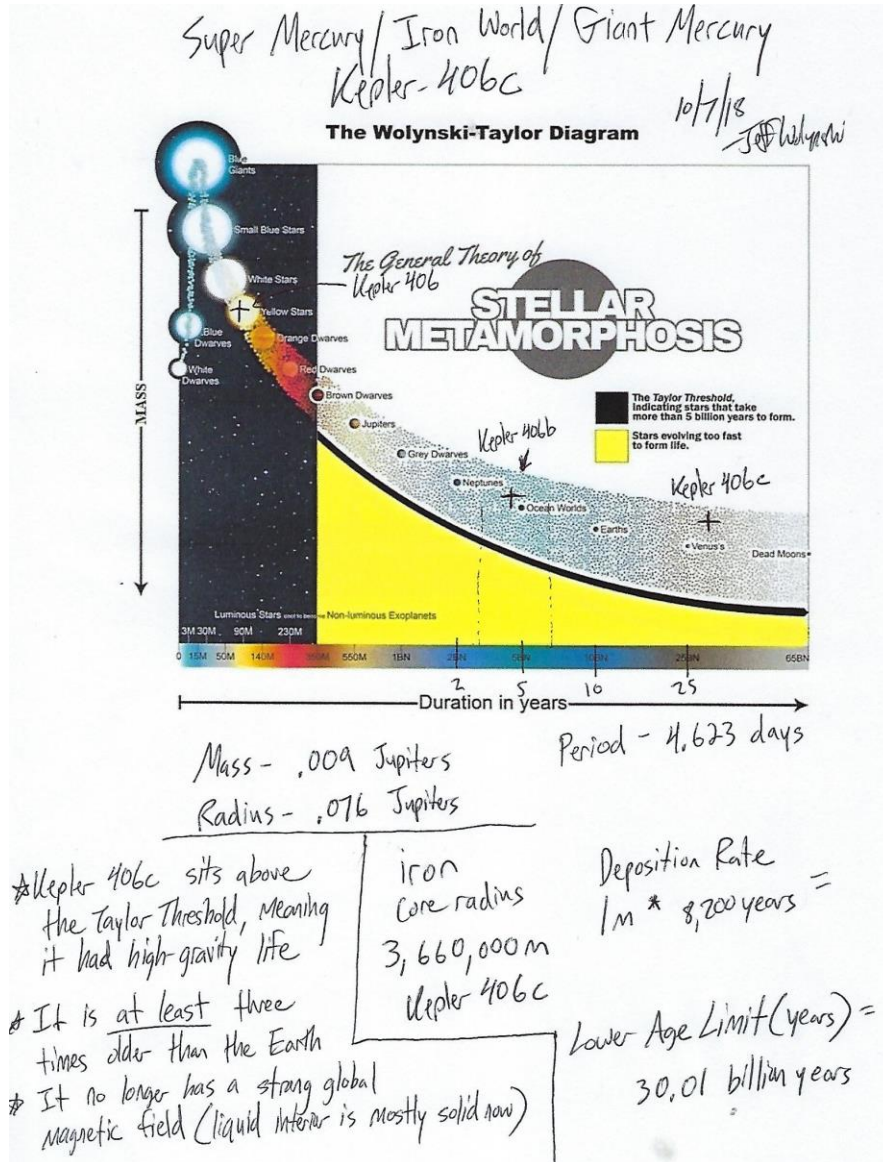 Super Mercury/Iron World/Giant Mercury
Kepler-406c
10/7/18
-Jeff Wolynski
The Wolynski-Taylor Diagram
Blue
Giants
Small Blue Stars
White Stars
The General Theory of
Kepler 406
STELLAR
METAMORPHOSIS
Yellow Stars
Blue
Dwarves
Orange Dwarves
White
Dwarves
Red Dwarves
Brown Dwarves
Jupiters
Grey Dwarves
Neptunes
Ocean Worlds
Earths
Venus's
Dead Moons
The Taylor Threshold,
indicating stars that take
more than 5 billion years to form.
Stars evolving too fast
to form life.
Kepler 406b
Kepler 406c
MASS
Luminous Stars Non-luminous Exoplanets
3M 30M 90M 230M
0 15M 50M 140M 550M 1BN 2BN 5BN 10BN 25BN 65BN
2 5 10 25
Duration in years
Mass - .009 Jupiters
Radius - .076 Jupiters
Period - 4.623 days
Kepler 406c sits above
the Taylor Threshold, meaning
it had high-gravity life
It is at least three
times older than the Earth
It no longer has a strong global
magnetic field (liquid interior is mostly solid now)
iron
core radius
3,660,000m
Kepler 406c
Deposition Rate
1m * 8,200 years =
Lower Age Limit (years) =
30.01 billion years